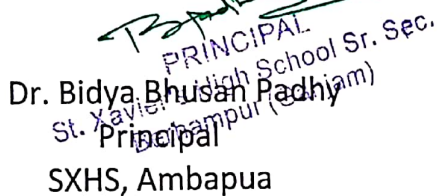 PRINCIPAL
St. Xavier High School Sr. Sec.
(Ganjam)
Dr. Bidya Bhusan Padhy
Principal
SXHS, Ambapua